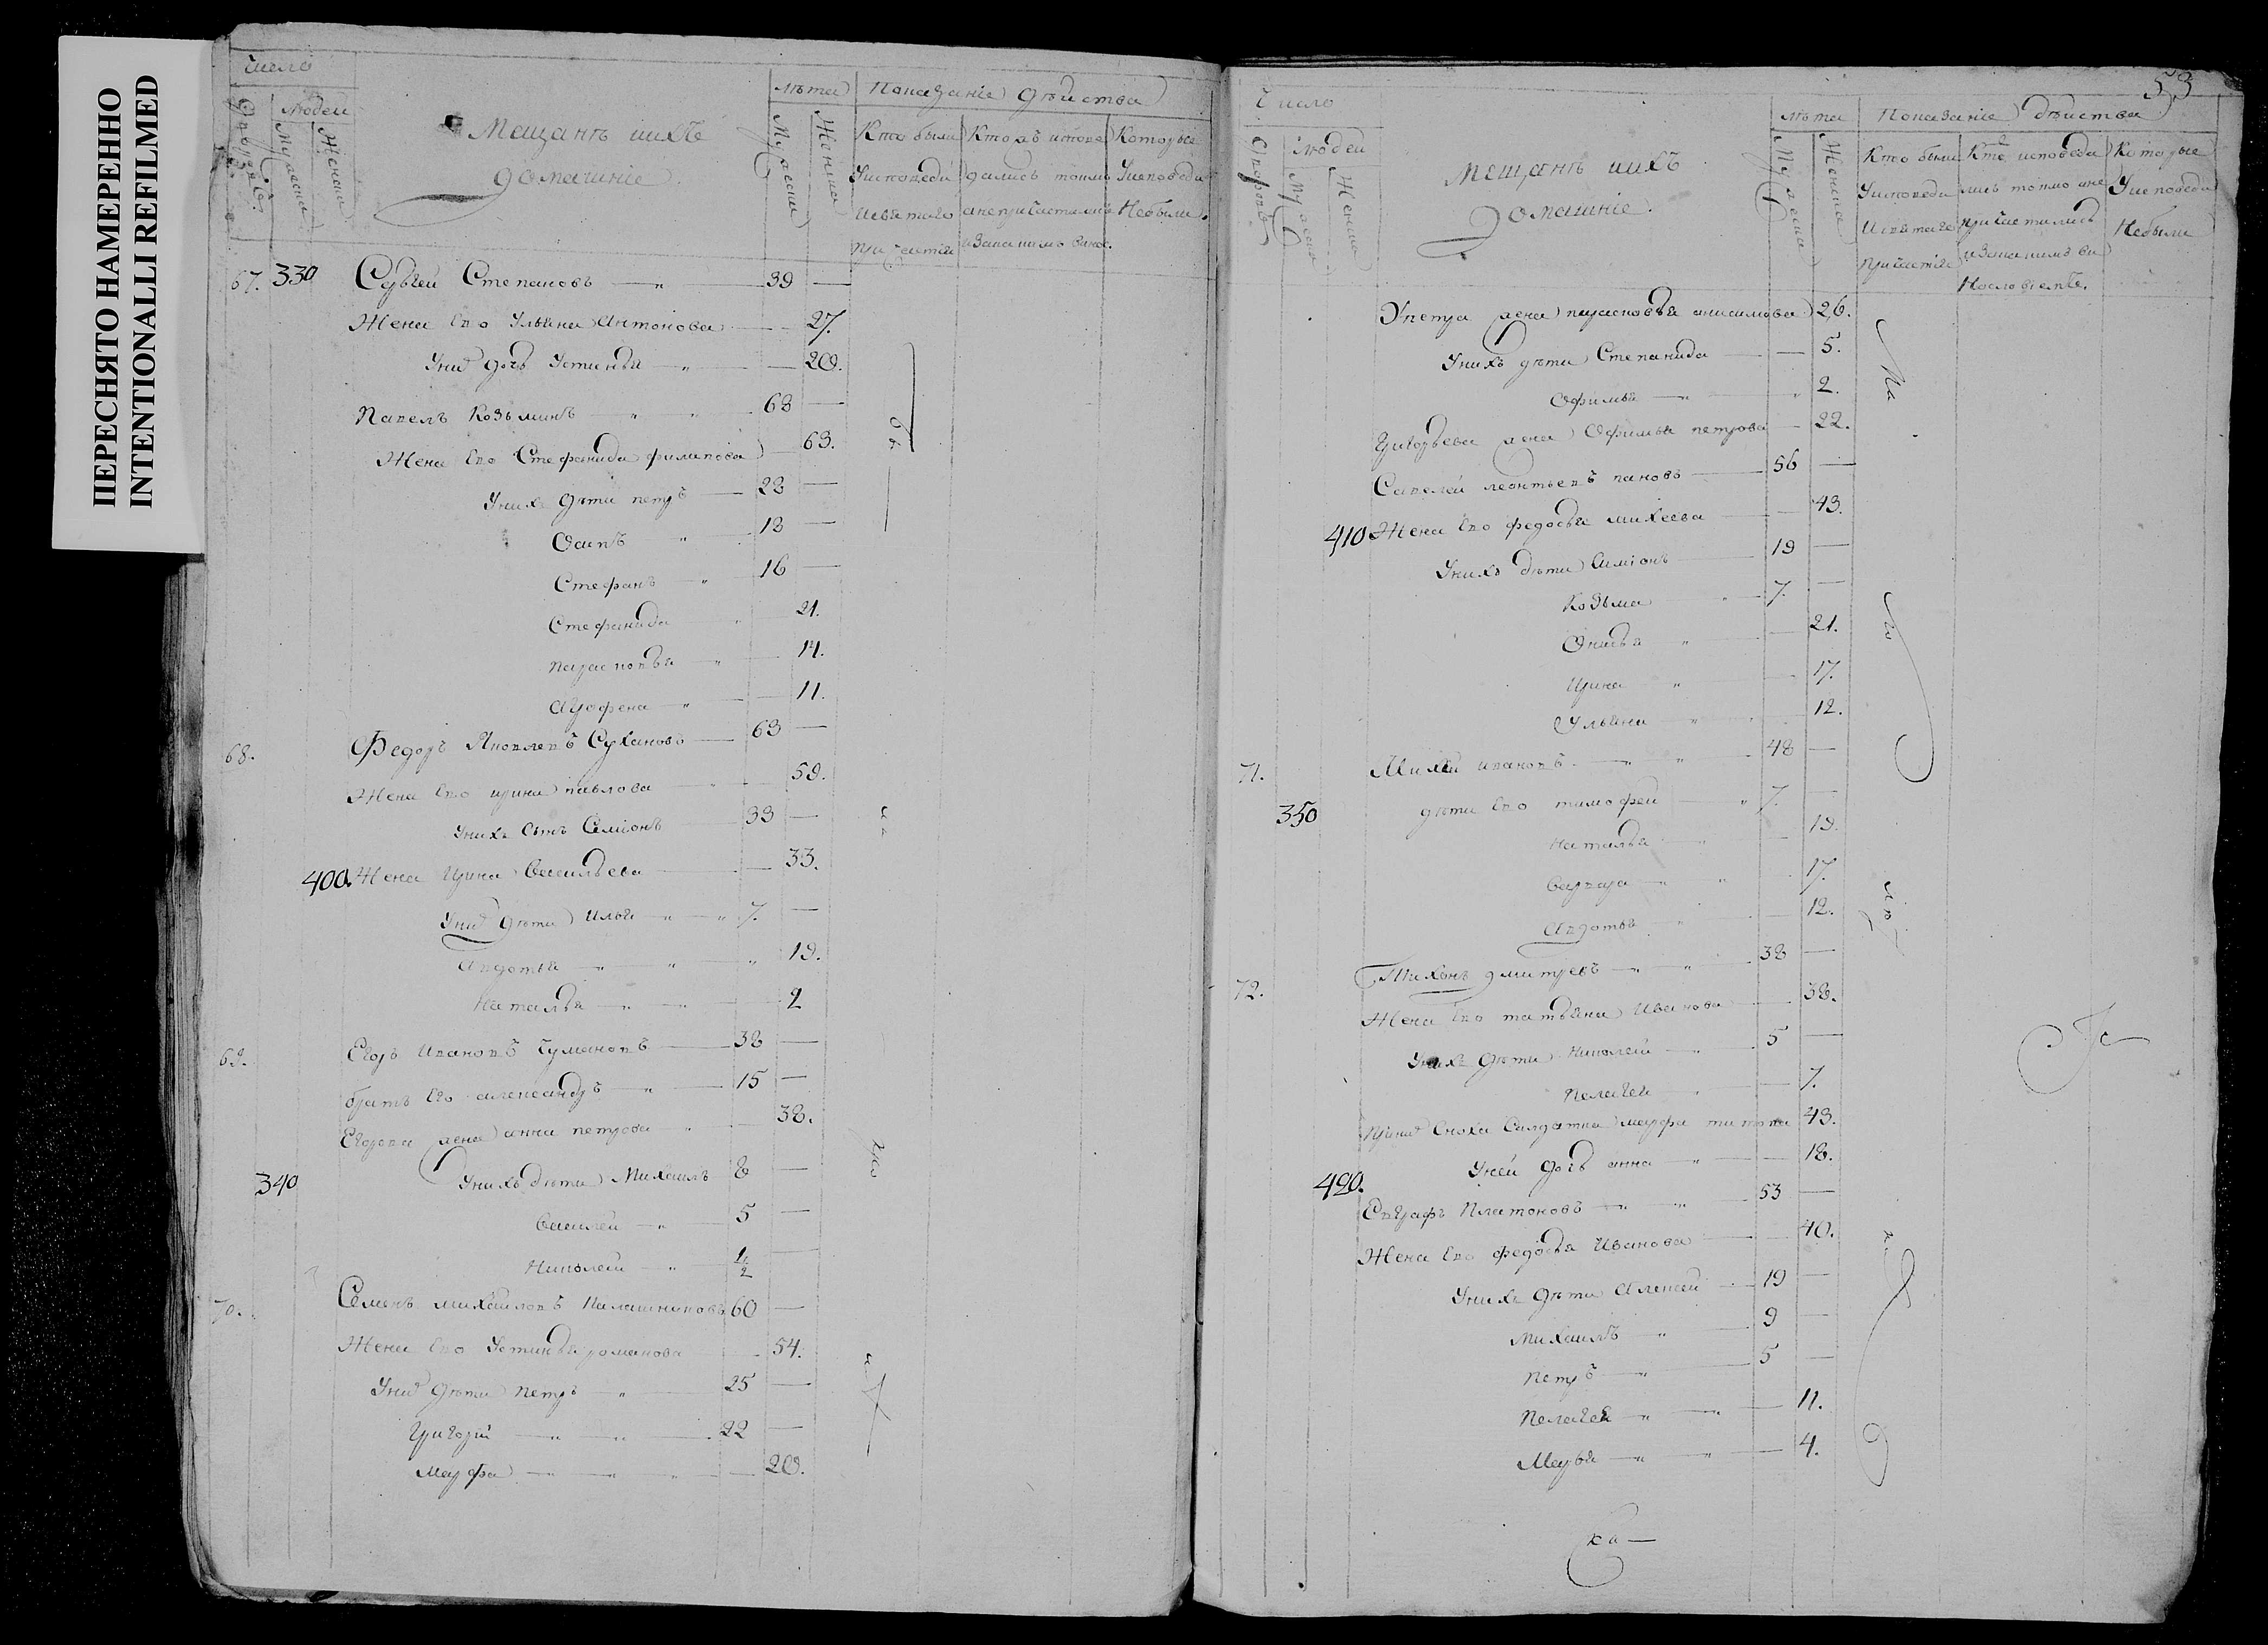 ПЕРЕСНЯТО НАМЕРЕННО
INTENTIONALLI REFILMED
Число
Дворовъ
людей
Мужеска
Женска
Мещанъ ихъ
домашніе
Лѣта
Мужеска
Женска
Показаніе дѣйства
Кто были
У исповеди
и святаго
причастія
Которые
У исповеди
Небыли.
67. 330 Сергей Степановъ 39
Жена Его Ульяна Антонова 27.
Уних дочь Устинья 20.
Павелъ Козьминъ 68
Жена Его Стефанида филипова 63.
Унихъ дѣти петръ 28
Осипъ 18
Стефанъ 16
Стефанида 21.
парасковья 14.
Агрофена 11.
68. Федоръ Яковлевъ Сухановъ 63
Жена Его ирина павлова 59.
Унихъ сынъ Семіонъ 33
400. Жена Ирина Васильева 33.
Уних дѣти Илья 7.
Авдотья 19.
Наталья 2
69. Егоръ Ивановъ Чумановъ 38
братъ Его александръ 15
Егорова жена анна петрова 38.
340 Унихъ дѣти Михаилъ 8
Василей 5
Николай 1/2
70. Семенъ михайловъ 60
Жена Его Устинья романова 54.
Уних дѣти петръ 25
Григорій 22
Марфа 20.
53
Число
Дворовъ
людей
Мужеска
Женска
Мещанъ ихъ
домашніе.
лѣта
Мужеска
Женска
Показаніе дѣйства
Кто были
У исповеди
и святаго
причастія
Кто исповеда
лись токмо а не
причастились
Которые
У исповеди
Небыли
У петра жена парасковья анисимова 26.
Унихъ дѣти Степанида 5.
Офимья 2.
Григорьева жена Офимья петрова 22.
Савелей леонтьевъ пановъ 56
410 Жена Его федосья михеева 43.
Унихъ дѣти Симіонъ 19
Козьма 7.
Онисья 21.
Ирина 17.
Ульяна 12.
71. Михей ивановъ 48
350 дѣти Его тимофей 7.
Наталья 19.
Варвара 17.
Авдотья 12.
72. Тихонъ дмитревъ 38
Жена Его татьяна Иванова 38.
Унихъ дѣти Николай 5
Пелагея 7.
При них Сноха Салдатка марфа титова 43.
Уней дочь анна 18.
420. Евграфъ Платоновъ 53
Жена Его федосья Иванова 40.
Унихъ дѣти Алексей 19
Михаилъ 9
Петръ 5
Пелагея 11.
Марья 4.